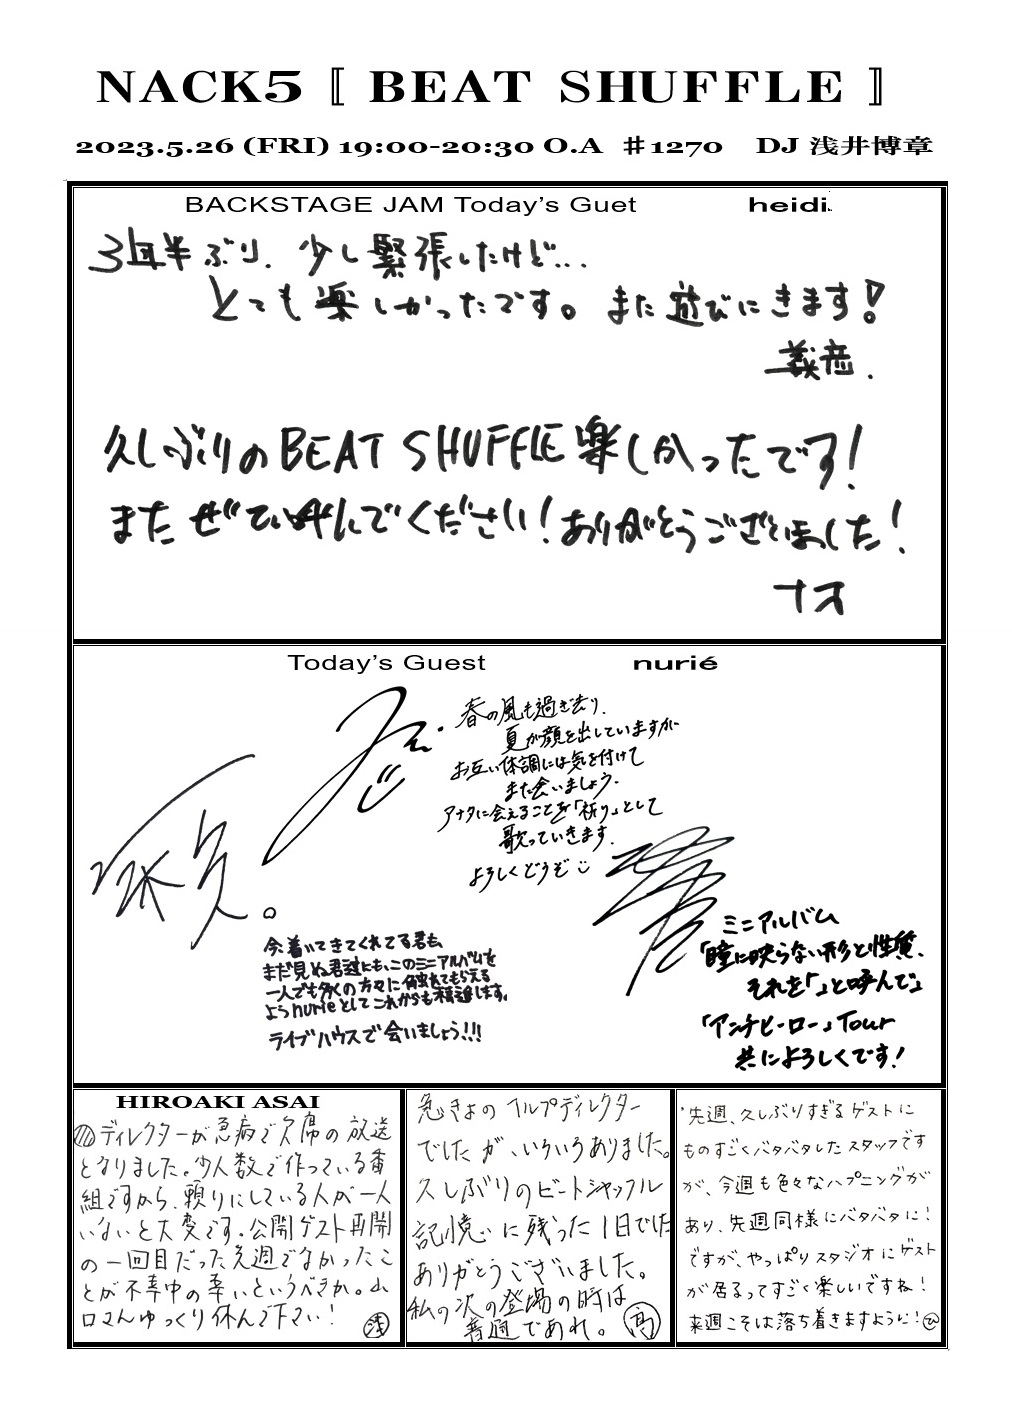 NACK5 〚 BEAT SHUFFLE 〛
2023.5.26 (FRI) 19:00-20:30 O.A ♯1270 DJ 浅井博章
BACKSTAGE JAM Today's Guet heidi.
3年半ぶり、少し緊張したけど...
とても楽しかったです。また遊びにきます!
義彦.
久しぶりのBEAT SHUFFLE楽しかったです!
またぜひ呼んでください!ありがとうございました!
ナオ
Today's Guest nurié
春の風も過ぎ去り、
夏が顔を出していますが
お互い体調には気を付けて
また会いましょう.
アナタに会えることを「祈り」として
歌っていきます.
よろしくどうぞ
今着いてきてくれてる君も、
まだ見ぬ君達にも、このミニアルバムを
一人でも多くの方々に触れてもらえる
ようnuriéとしてこれからも精進します。
ライブハウスで会いましょう!!!
ミニアルバム
「瞳に映らない形と性質、
それを「」と呼んで」
「アンチヒーロー」Tour
共によろしくです!
HIROAKI ASAI
ディレクターが急病で欠席の放送
となりました。少人数で作っている番
組ですから、頼りにしている人が一人
いないと大変です。公開ゲスト再開
の一回目だった先週でなかったこ
とが不幸中の幸いというべきか。山
口さんゆっくり休んで下さい! 浅
急きょのヘルプディレクター
でしたが、いろいろありました。
久しぶりのビートシャッフル
記憶に残った1日でした
ありがとうございました。
私の次の登場の時は
普通であれ。 高
先週、久しぶりすぎるゲストに
ものすごくバタバタしたスタッフです
が、今週も色々なハプニングが
あり、先週同様にバタバタに!
ですが、やっぱりスタジオにゲスト
が居るってすごく楽しいですね!
来週こそは落ち着きますように! ひ